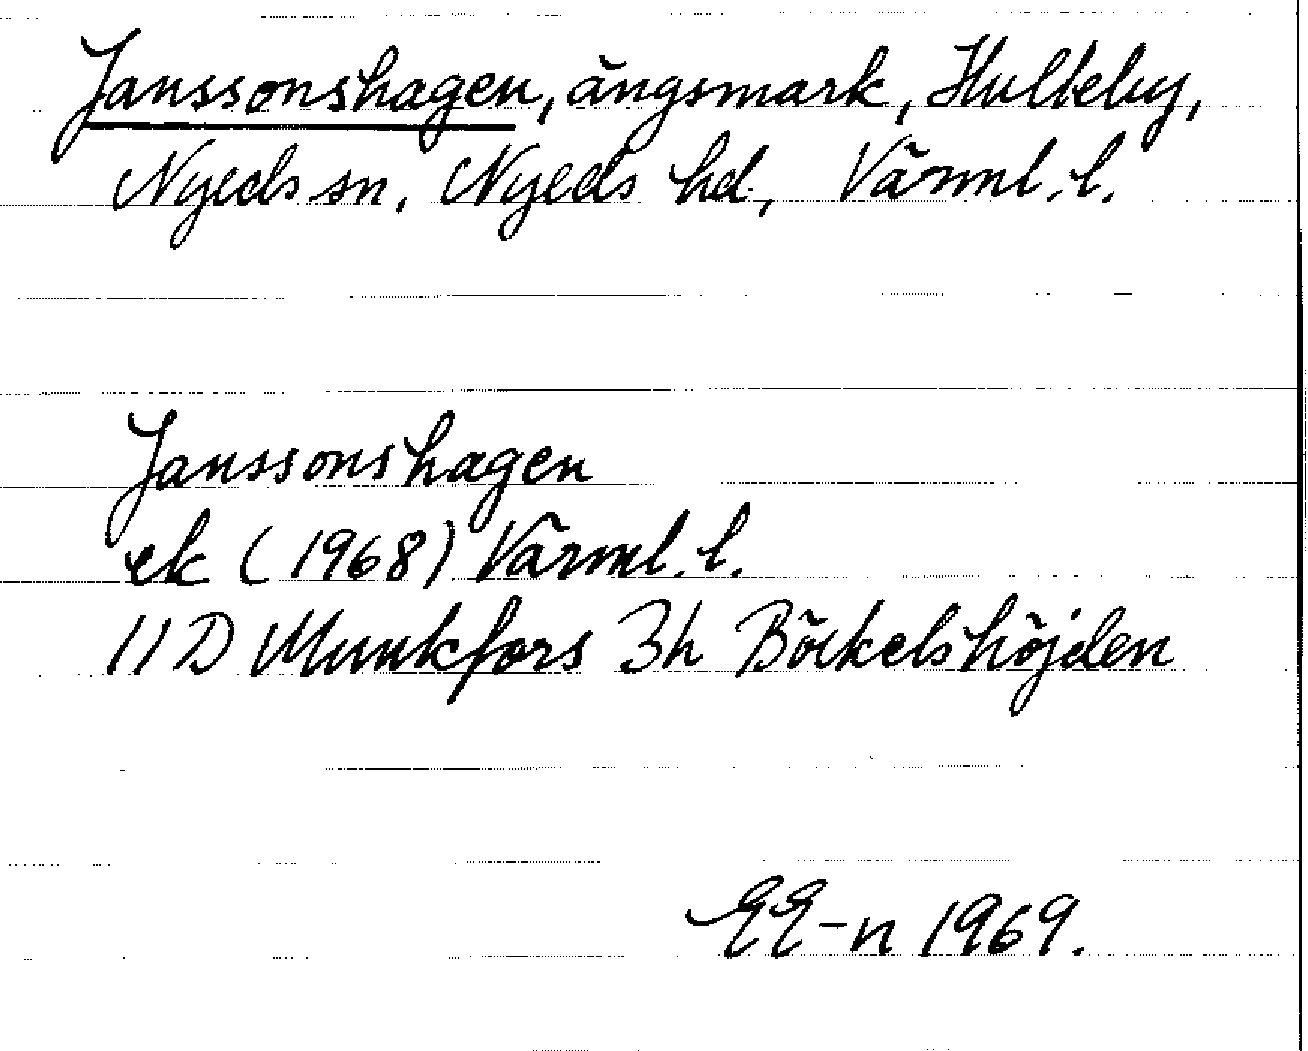 Janssonshagen, ängsmark, Hulteby,
Nyeds sn, Nyeds hd, Värml. l.
Janssonshagen
ek (1968) Värml. l.
11 D Munkfors 3h Böckelshöjden
EE-n 1969.